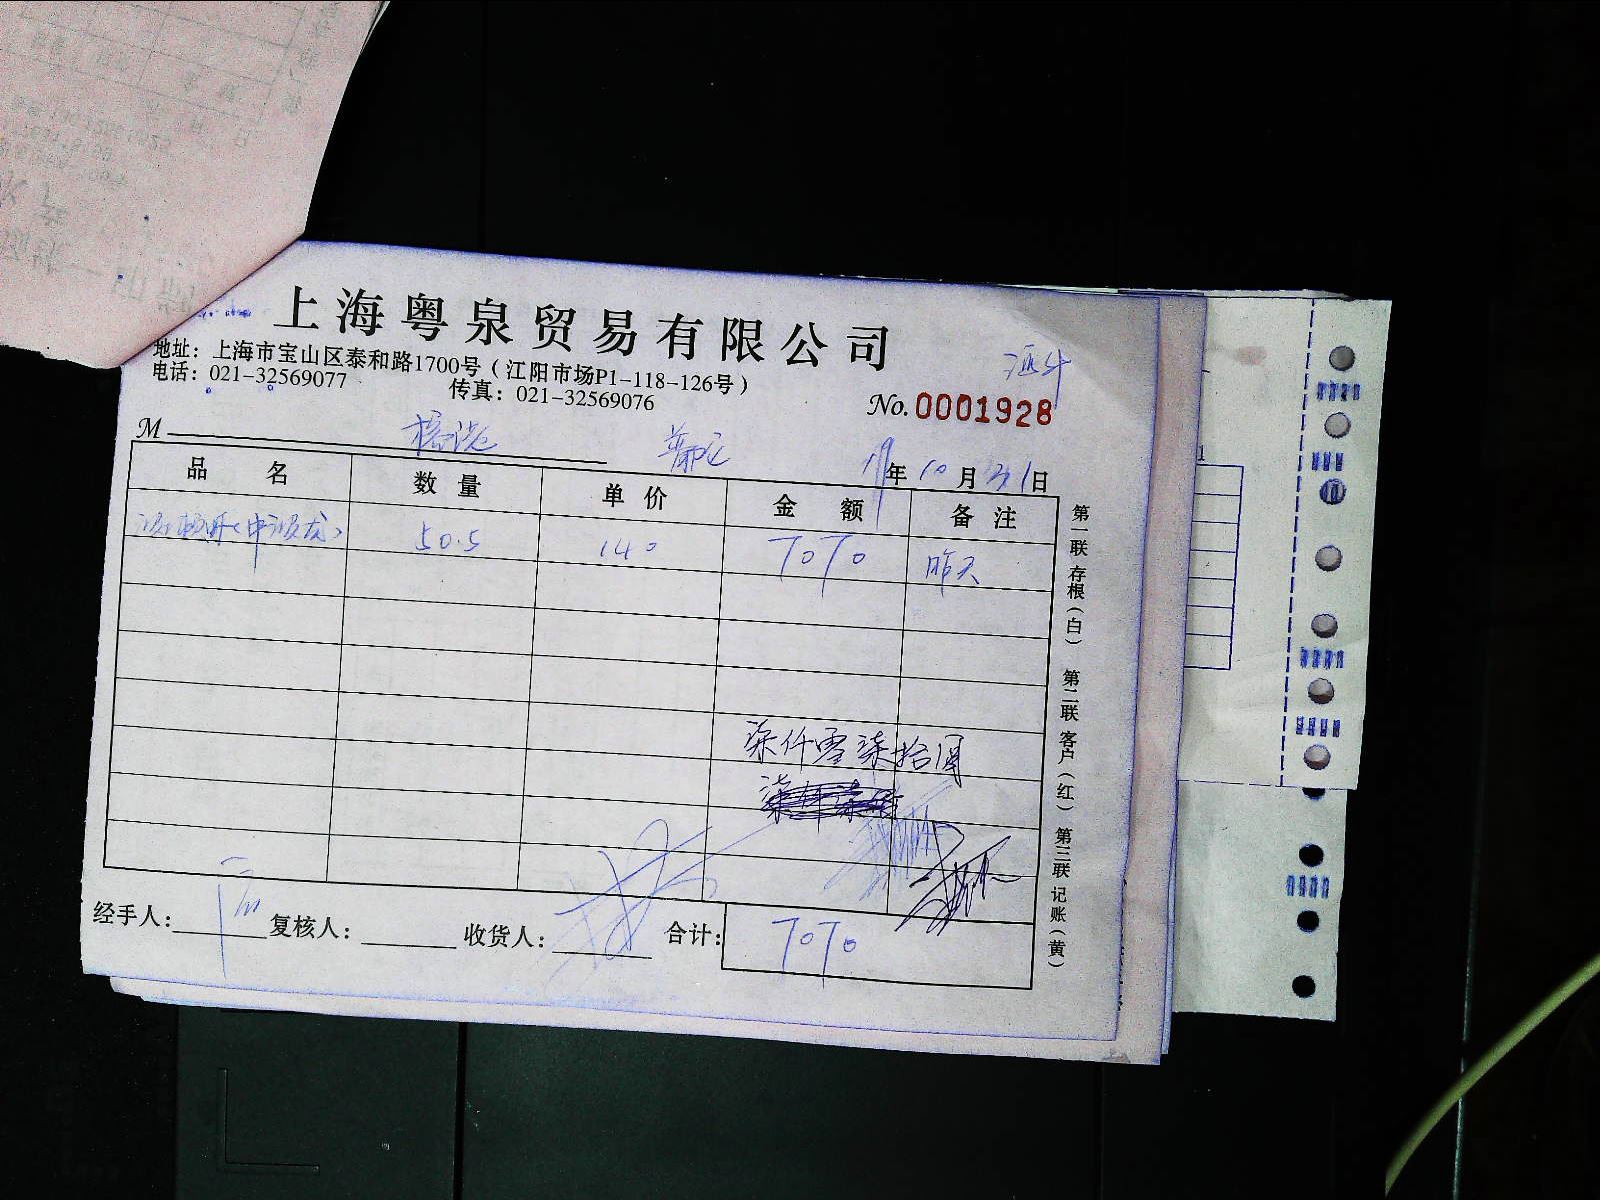 上海粤泉贸易有限公司
地址：上海市宝山区泰和路1700号（江阳市场P1-118-126号）
电话：021-32569077 传真：021-32569076
No.0001928
M 19年10月31日
品名 数量 单价 金额 备注
50.5 140 7070 昨天
柒仟零柒拾圆
经手人： 复核人： 收货人： 合计： 7070
第一联 存根（白） 第二联 客户（红） 第三联 记账（黄）